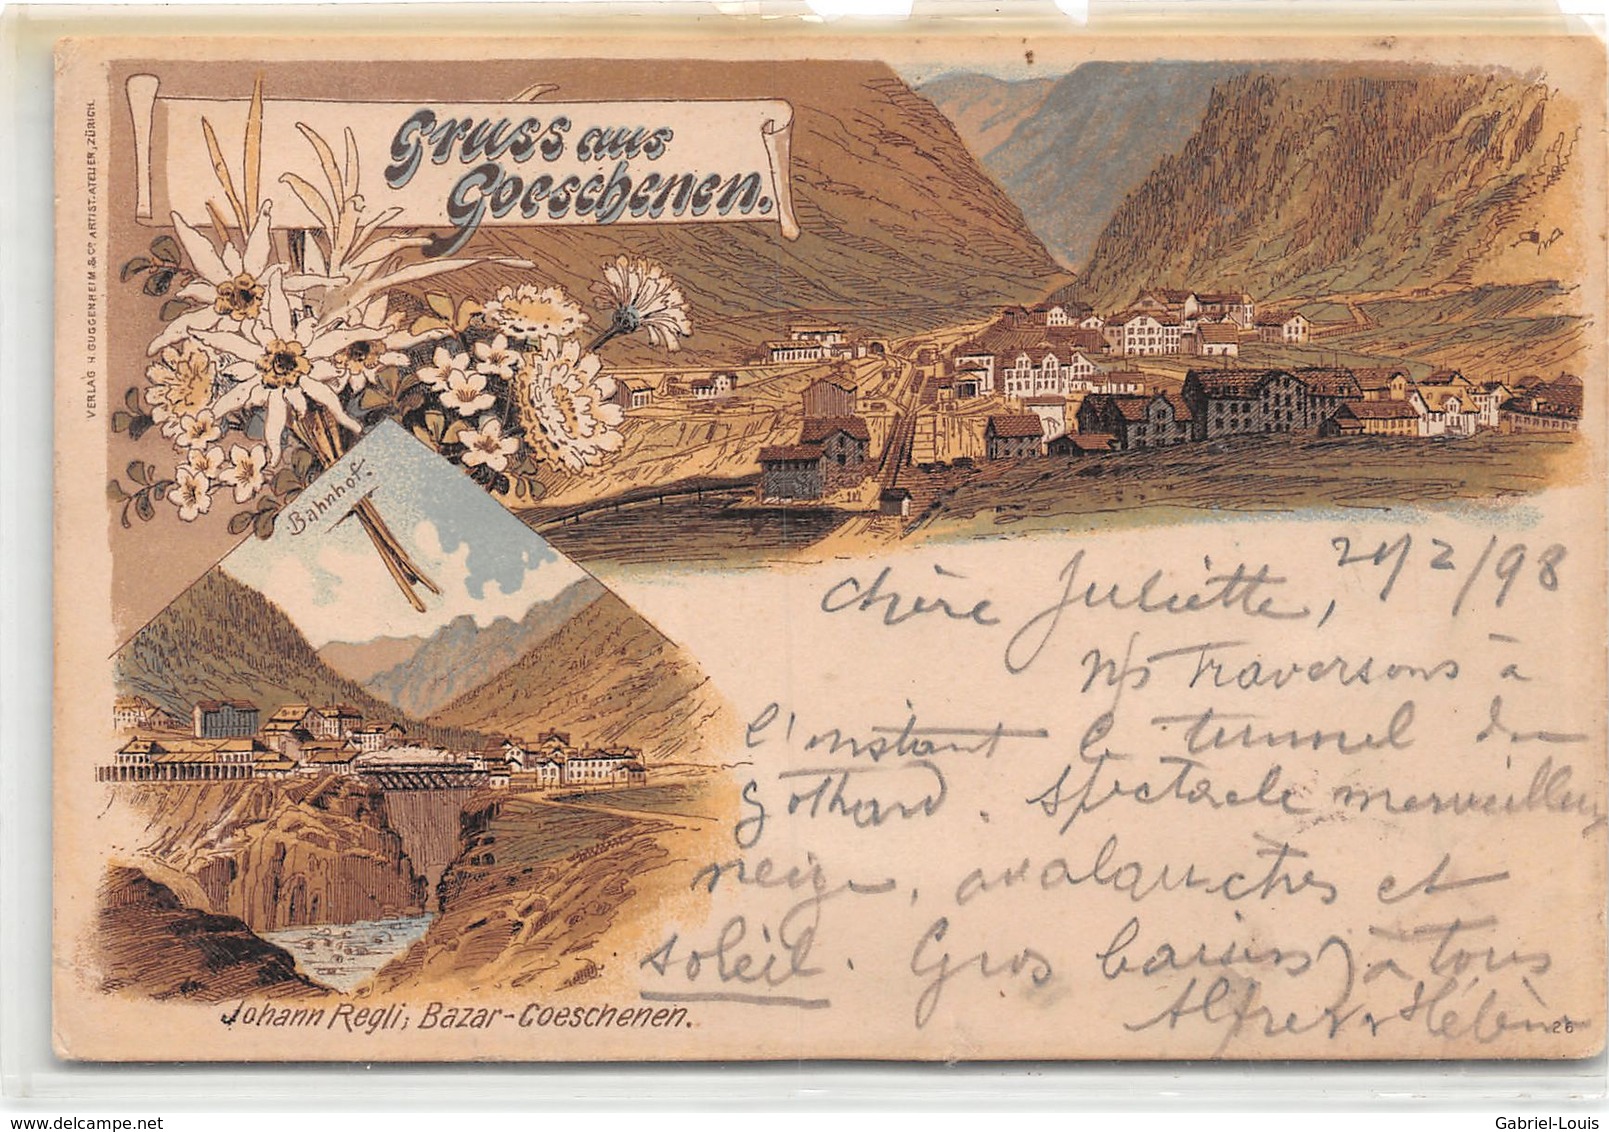 VERLAG H. GUGGENHEIM & Co. ARTIST. ATELIER, ZÜRICH.
Gruss aus
Goeschenen.
Bahnhof.
Chère Juliette, 21/2/98
Ns traversons à
l'instant le tunnel du
Gothard. Spectacle merveilleux
neige, avalanches et
soleil. Gros baisers à tous
Alfred & Hélène
Johann Regli, Bazar-Goeschenen.
26
Gabriel-Louis